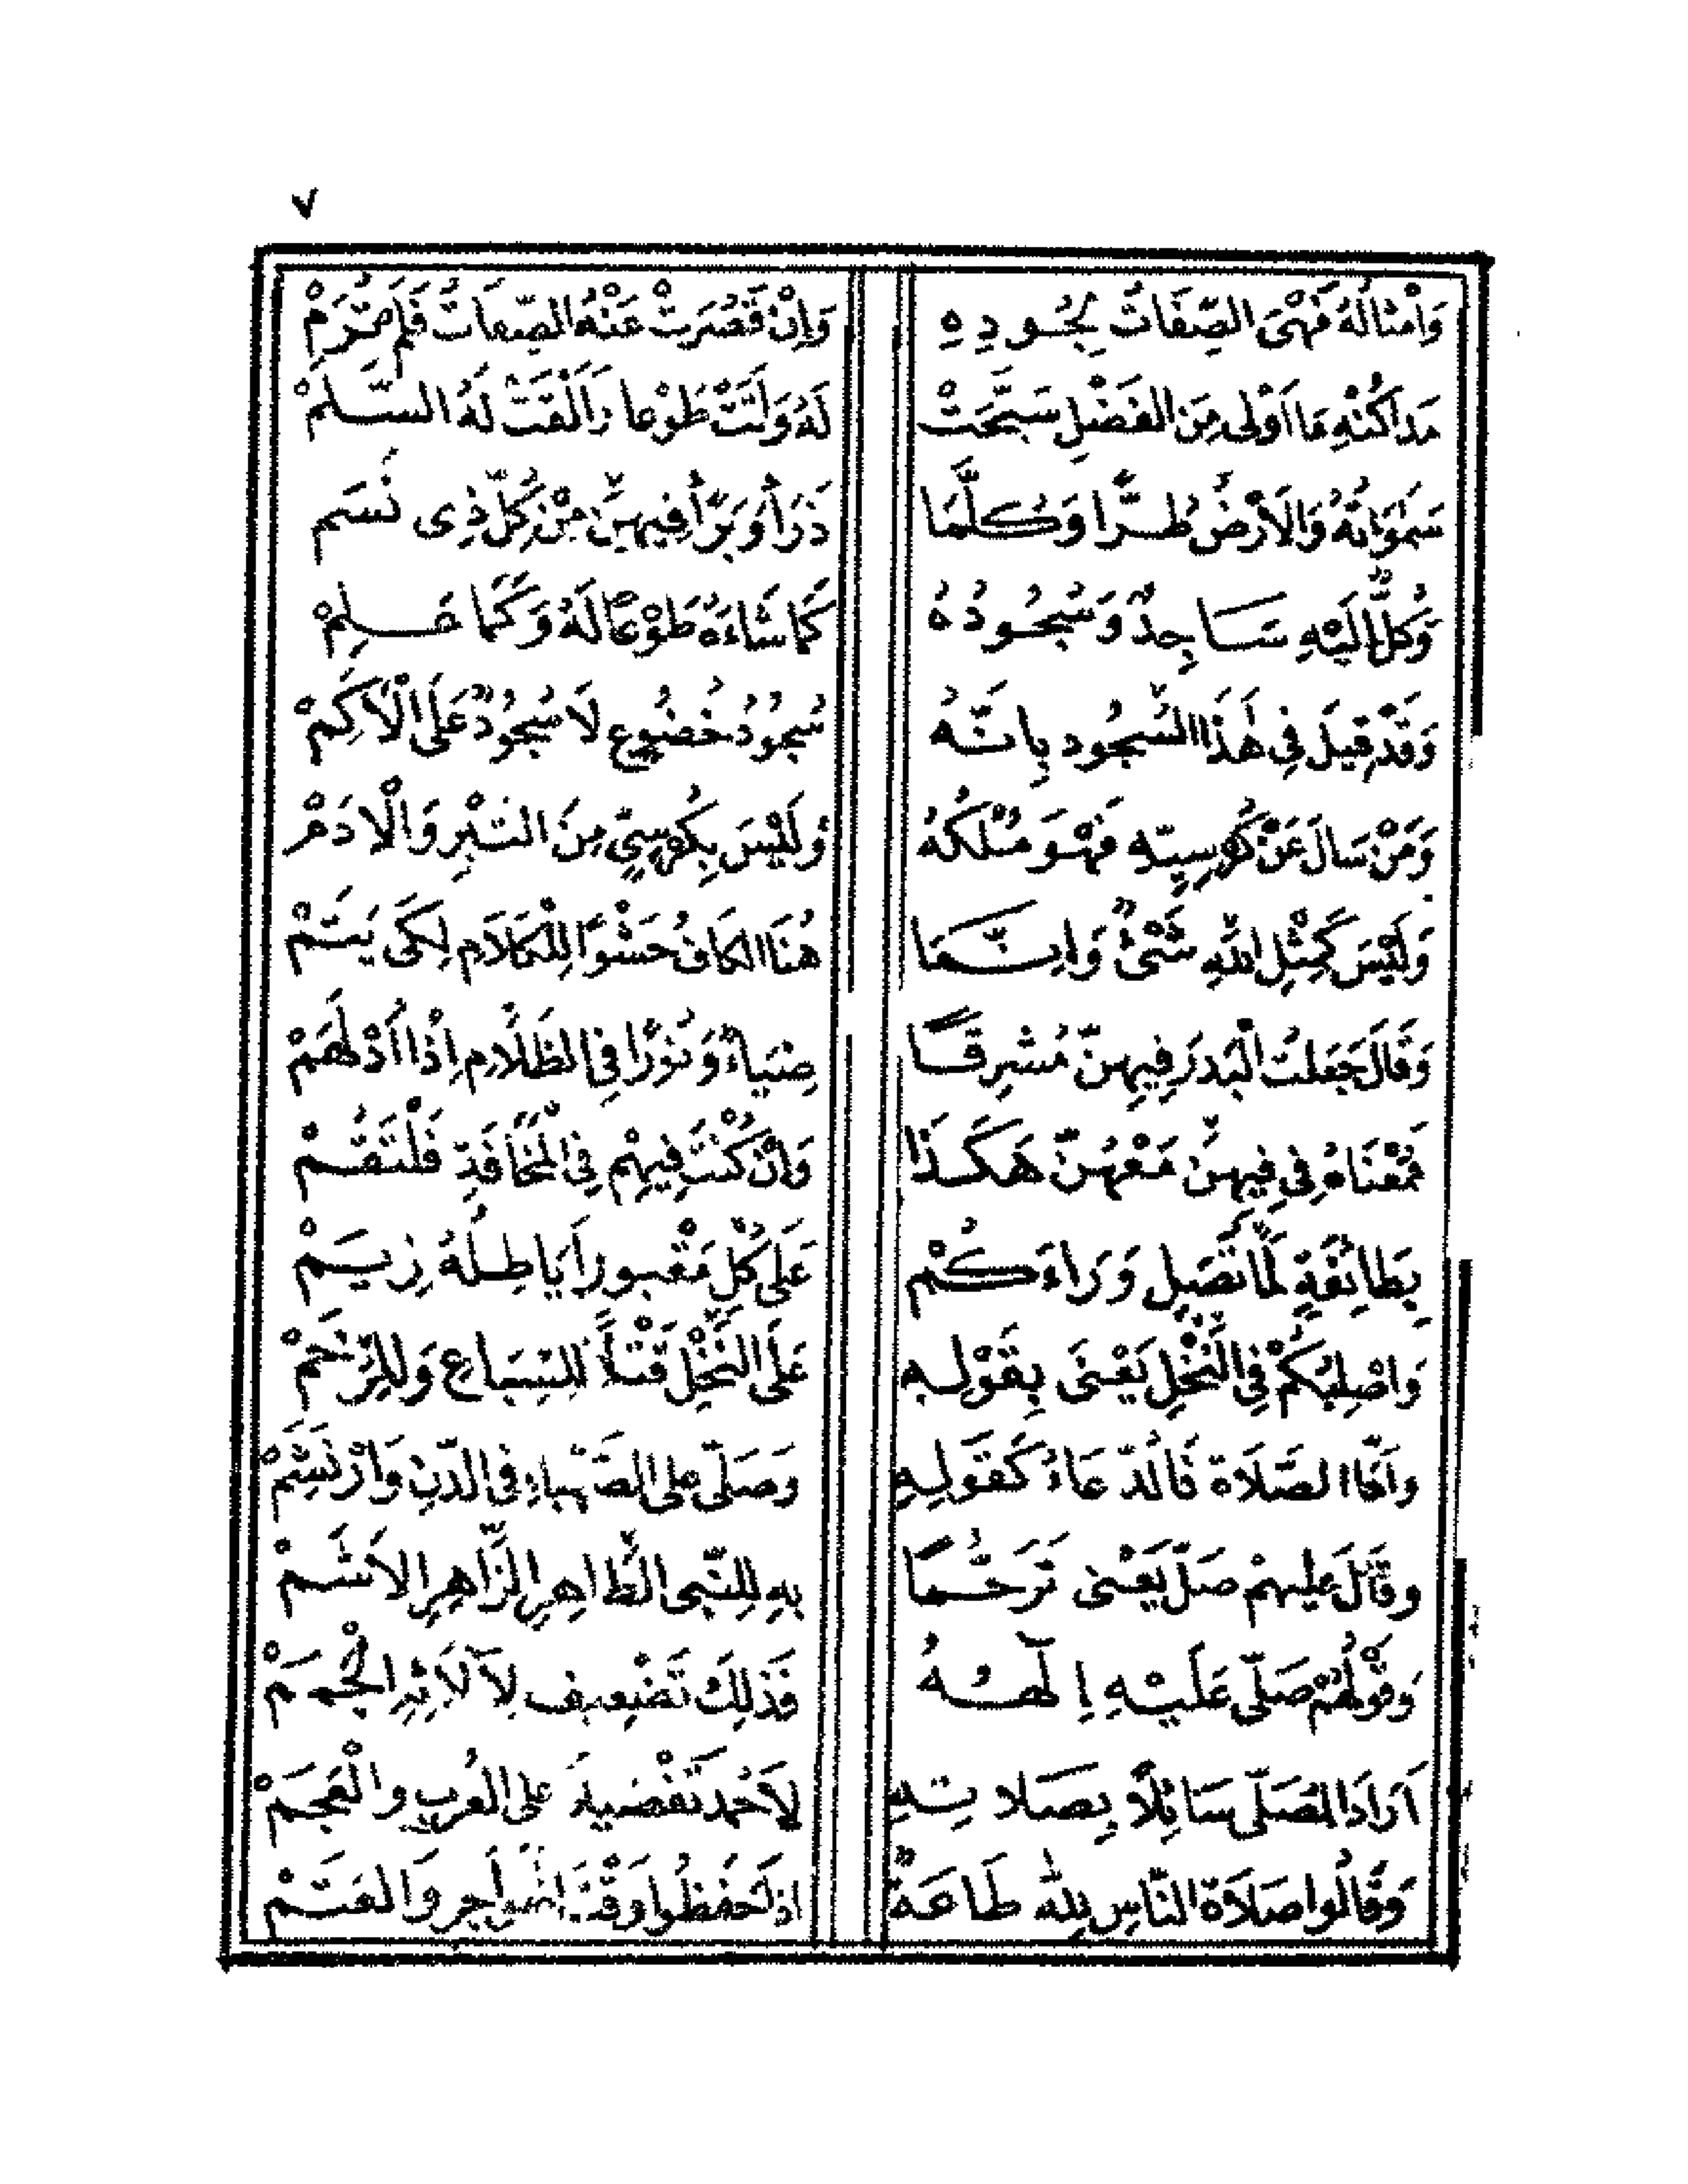 ٧
وَأَمْثَالُهُ فَهْىَ الصِّفَاتُ بِجُودِهِ وَاِنْ قَصُرَتْ عَنْهُ الصِّفَاتُ فَلَمْ
مَدَاكُنْهِ مَا اَوْلى مِنَ الفَضْلِ سَبَّحَتْ لَهُ وَلَبَّتْ طَوْعا وَاَلْقَتْ لَهُ السَّلَمْ
سَمٰوَاتُهُ وَالاَرْضُ طُرًّا وَكُلَّمَا ذَرَأ وَبَرَّأ فِيهِنَّ مِنْ كُلِّ ذِى نَسَم
وَكُلٌّ اِلَيْهِ سَاجِدٌ وَسُجُودُهُ كَمَا شَاءَهُ طَوْعًا لَهُ وَكَمَا عَلِمْ
وَقَدْ قِيلَ فِى هَذَا السُّجُودِ بِاَنَّهُ سُجُودُ خُضُوعٍ لَا سُجُودٌ عَلَى الْاَكَمْ
وَمَنْ سَالَ عَنْ كُرْسِيِّهِ فَهْوَ مُلْكُهُ وَلَيْسَ بِكُرْسِيٍّ مِنَ التِّبْرِ وَالْادَمْ
وَلَيْسَ كَمِثْلِ اللهِ شَىْءٌ وَاِنَّمَا هُنَا الكَافُ حَشْوًا لِلْكَلَامِ لِكَى يَتَمْ
وَقَالَ جَعَلتُ الْبَدرَ فِيهِنّ مُشرِقًا ضِيَاءً وَنُوْرًا فِى الظَلَامِ اِذَا اَدْلَهَمْ
فَمَعْنَاهُ فِى فِيهِنَّ مَعْهُنّ هَكَذَا وَاِنْ كُنْتَ فِيهِمْ فِى الْمَخَافَةِ فَلْتَقُمْ
بِطَائِفَةٍ لَمَّا تُصَلِ وَرَاءَكُمْ عَلَى كُلِّ مَقْبُور
وَاصْلِبُكُمْ فِى النَّخْلِ يَعْنَى بِقَوْلِهِ عَلَى النَّخْلِ قَتْلًا لِلسِّبَاعِ وَلِلرَّخَمْ
وَاَمَّا الصَّلَاة فَالدّعَاءُ كَقَولِهِ وَصَلّى عَلى الصَّهْبَاءِ فى الدّنِ وَارْتَسَمْ
وقَالَ عَليهِمْ صَلّ يَعْنى تَرَحُّمًا بِهِ لِلنَّبِى الطَّاهِرِ الزَّاهِرِ الاَشَمْ
وَقَوْلُهُمْ صَلّى عَلَيْهِ اِلَهُهُ فَذلِكَ تَضْعِيف لِآلَائِهِ الْجُمَمْ
اَرَادَ المُصَلّى سَائِلًا بِصَلاتِهِ لِاَحْمَد تَفْضِيلَ عَلى العُربِ والْعَجَمْ
وَقَالُوا صَلَاةُ النّاسِ لِلّهِ طَاعَةٌ اذا حَفِظُوا وَقْتَ الهَواجِرِ وَالعَتَمْ